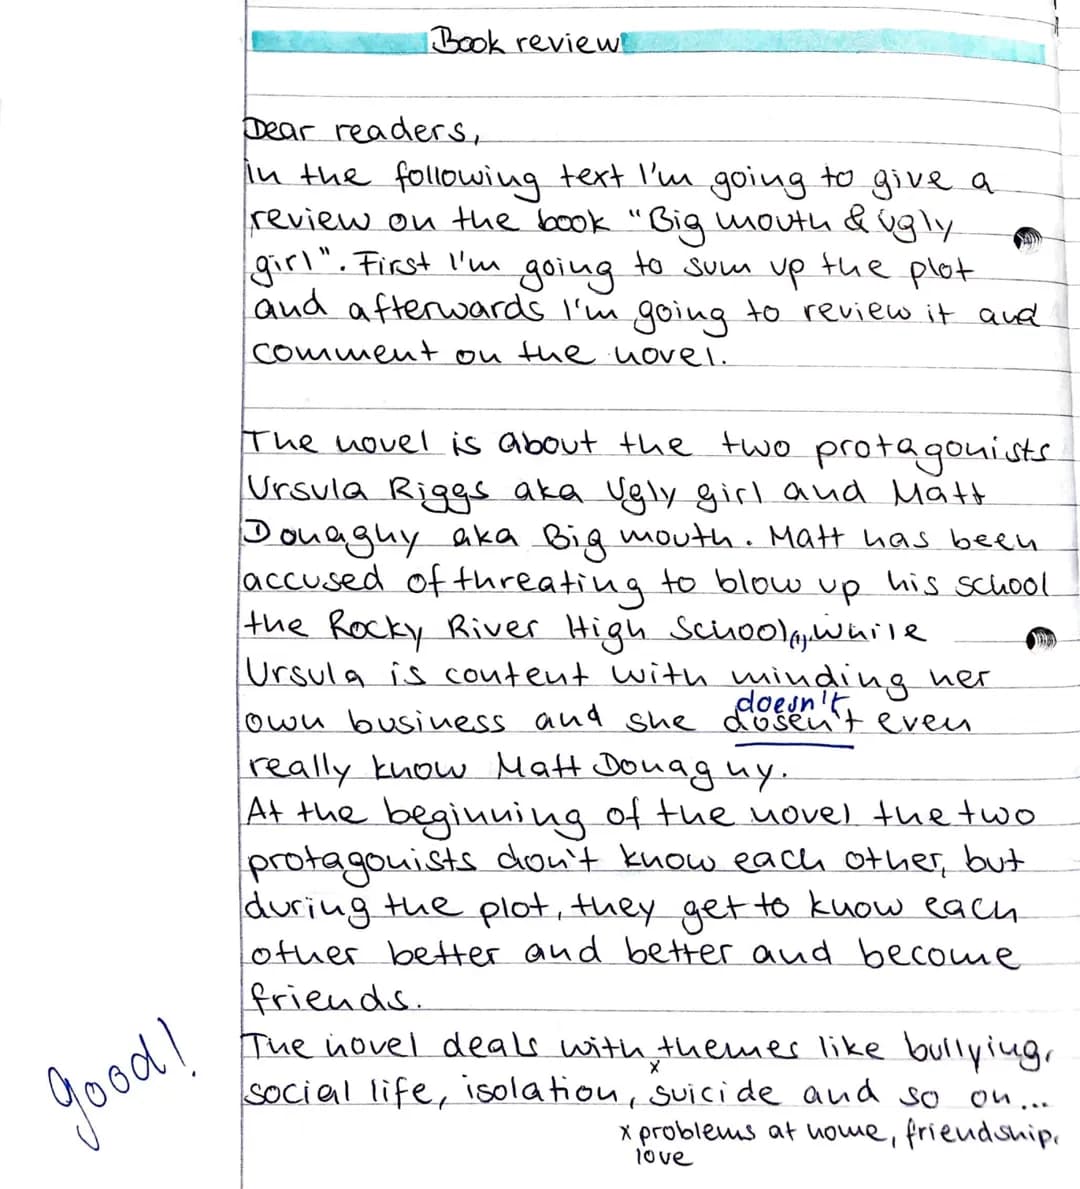 Book review
Dear readers,
in the following text I'm going to give a
review on the book "Big mouth & Ugly
girl". First I'm going to sum up the plot
and afterwards I'm going to review it and
comment on the novel.
The novel is about the two protagonists
Ursula Riggs aka Ugly girl and Matt
Donaghy aka Big mouth. Matt has been
accused of threating to blow up his school
the Rocky River High School(,), while
Ursula is content with minding her
doesn't
own business and she dosen't even
really know Matt Donaghy.
At the beginning of the novel the two
protagonists don't know each other, but
during the plot, they get to know each
other better and better and become
friends.
good!
The novel deals with themes like bullying,
x
social life, isolation, suicide and so on...
x problems at home, friendship,
love